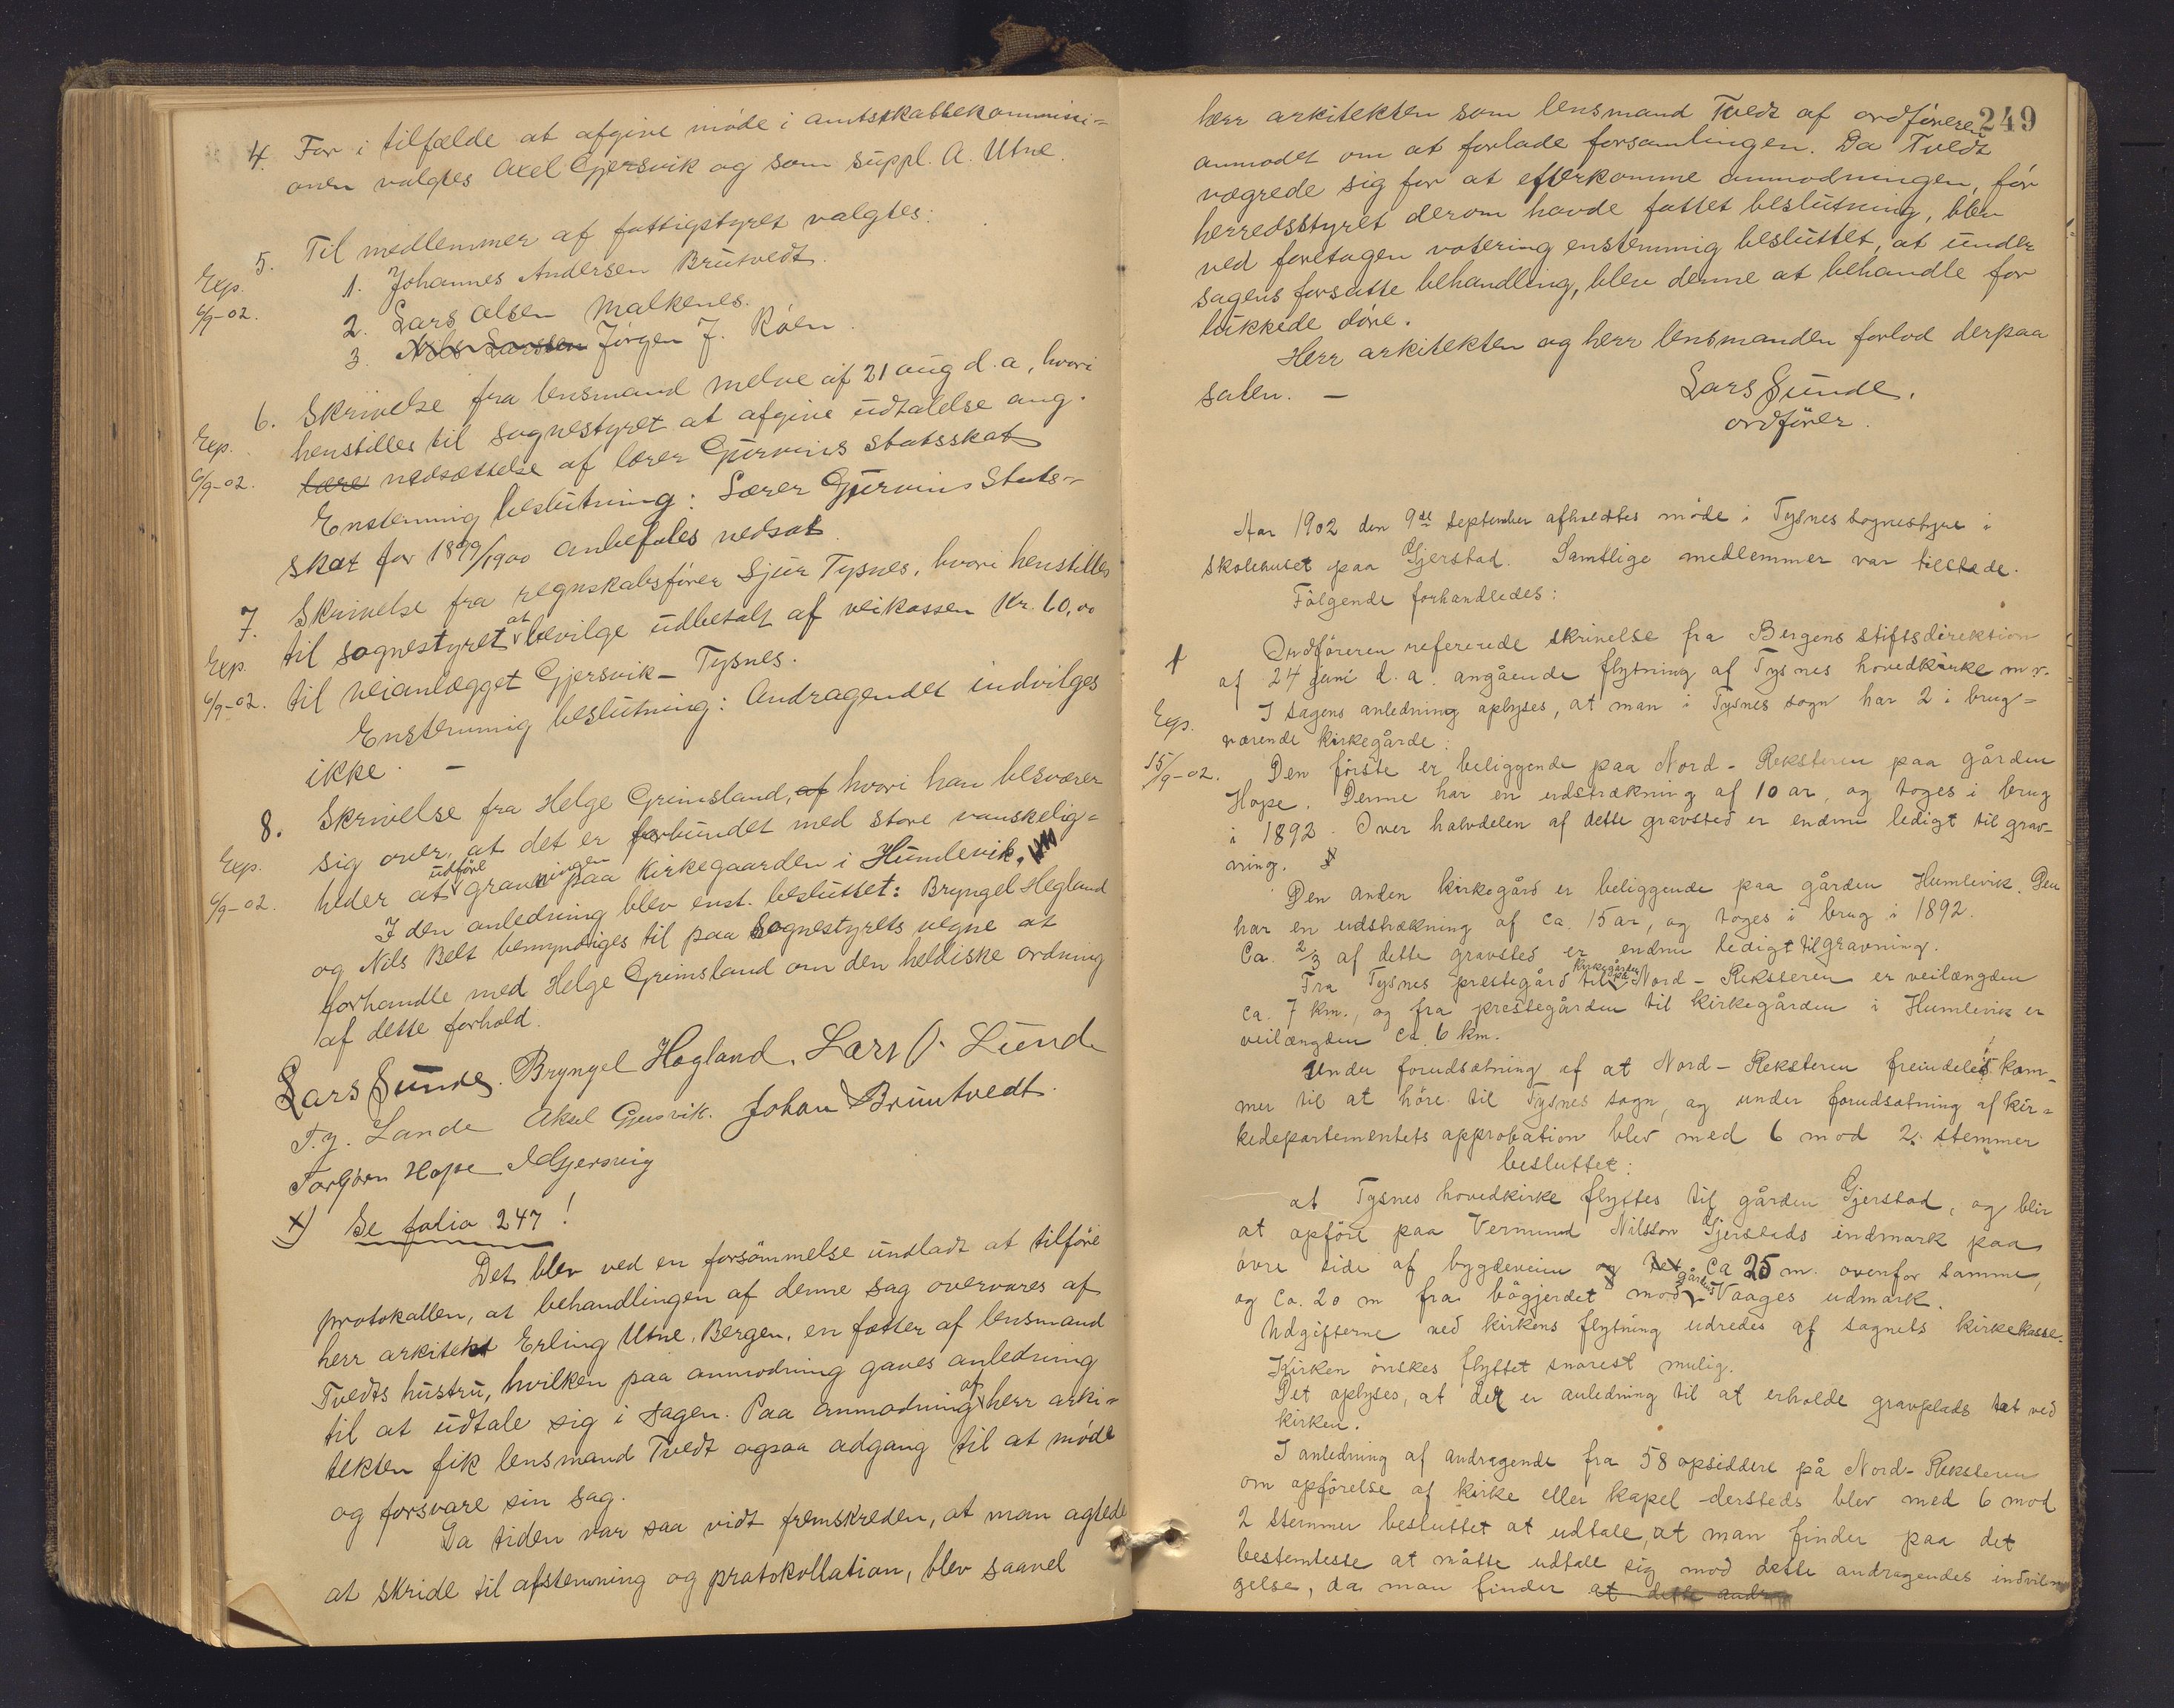 4. For i tilfælde at afgive møde i amtsskattekommissi-
onen valgtes Axel Gjersvik og som suppl. A. Utne.
5. Til medlemmer af fattigstyret valgtes:
Exp. 1. Johannes Andersen Brutvedt.
6/9-02. 2. Lars Olsen Malkenes.
3. Nils Larssen Jörgen J. Röen.
6. Skrivelse fra lensmand Melve af 21 aug d.a., hvori
Exp. henstilles til sognestyret at afgive udtalelse ang.
6/9-02. lærer nedsættelse af lærer Gjervins statsskat
Enstemmig beslutning: Lærer Gjervins Stats-
skat for 1899/1900 anbefales nedsat
7. Skrivelse fra regnskabsfører Sjur Tysnes, hvori henstilles
til sognestyret at bevilge udbetalt af veikassen Kr. 60,00
Exp.
6/9-02. til veianlægget Gjersvik – Tysnes.
Enstemmig beslutning: Andragendet indvilges
ikke. –
8. Skrivelse fra Helge Grimsland, af hvori han besværer
sig over, at det er forbundet med store vanskelig-
Exp. heder at udföre gravningen paa Kirkegaarden i Humlevik.
6/9-02. I den anledning blev enst. besluttet: Bryngel Hegland
og Nils Belt bemyndiges til paa Sognestyrets vegne at
forhandle med Helge Grimsland om den heldiske ordning
af dette forhold.
Lars Sunde. Bryngel Hogland. Lars O. Lunde
T. J. Lande Aksel Gjersvik. Johan Bruntvedt.
Torbjørn Hope J Gjersvig
x) Se folio 247!
Det blev ved en forsömmelse undladt at tilföre
protokollen, at behandlingen af denne sag overvares af
herr arkitekt Erling Utne, Bergen, en fætter af lensmand
Tvedts hustru, hvilken paa anmodning gaves anledning
til at udtale sig i sagen. Paa anmodning af herr arki-
tekten fik lensmand Tvedt ogsaa adgang til at møde
og forsvare sin sag.
Da tiden var saa vidt fremskreden, at man agtede
at skride til afstemning og protokollation, blev saavel
249
herr arkitekten som lensmand Tvedt af ordföreren
anmodet om at forlade forsamlingen. Da Tvedt
vægrede sig for at efterkomme anmodningen, för
herredsstyret derom havde fattet beslutning, blev
ved foretagen votering enstemmig besluttet, at under
sagens forsatte behandling, blev denne at behandle for
lukkede döre.
Herr arkitekten og herr lensmanden forlod derpaa
salen. –
Lars Sunde.
ordförer.
Aar 1902 den 9de september afholdtes møde i Tysnes sognestyre i
skolehuset paa Gjerstad. Samtlige medlemmer var tilstede.
Fölgende forhandledes:
1 Ordföreren refererede skrivelse fra Bergens stiftsdirektion
af 24 juni d.a. angående flytning af Tysnes hovedkirke m.v.
Exp. I sagens anledning oplyses, at man i Tysnes sogn har 2 i brug-
værende kirkegårde:
15/9-02. Den förste er beliggende paa Nord-Reksteren paa gården
Hope. Denne har en udstrækning af 10 ar, og toges i brug
i 1892. Over halvdelen af dette gravsted er endnu ledigt til grav-
ning.
Den anden kirkegård er beliggende paa gården Humlevik. Den
har en udstrækning af ca. 15 ar, og toges i brug i 1892.
Ca. 2/3 af dette gravsted er endnu ledigt til gravning.
Fra Tysnes prestegård til kirkegården på Nord-Reksteren er veilængden
ca. 7 km., og fra prestegården til kirkegården i Humlevik er
veilængden ca. 6 km.
Under forudsætning af at Nord-Reksteren fremdeles kom-
mer til at höre til Tysnes sogn, og under forudsætning af kir-
kedepartementets approbation blev med 6 mod 2 stemmer
besluttet:
at Tysnes hovedkirke flyttes til gården Gjerstad, og blir
at opföre paa Vermund Nilsson Gjerstads indmark paa
övre side af bygdeveien og ca 25 m. ovenfor samme,
og ca. 20 m fra bögjerdet mod gården Vaages udmark.
Udgifterne ved kirkens flytning udredes af sognets kirkekasse.
Kirken önskes flyttet snarest mulig.
Det oplyses, at der er anledning til at erholde gravplads tæt ved
kirken.
I anledning af andragende fra 58 opsiddere på Nord-Reksteren
om opförelse af kirke eller kapel dersteds blev med 6 mod
2 stemmer besluttet at udtale, at man finder paa det
bestemteste at måtte udtale sig mod dette andragendes indvil-
gelse, da man finder at dette andr